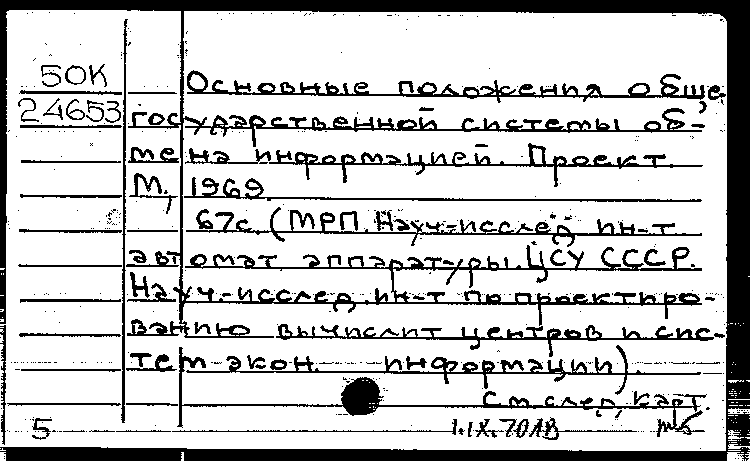 50К
24653
Основные положения обще-
государственной системы об-
мена информацией. Проект.
М., 1969.
67с. (МРП. Науч.-исслед. ин-т
автомат. аппаратуры. ЦСУ СССР.
Науч.-исслед. ин-т по проектиро-
ванию вычислит. центров и сис-
тем экон. информации).
См. след. карт.
5
1.IX.70